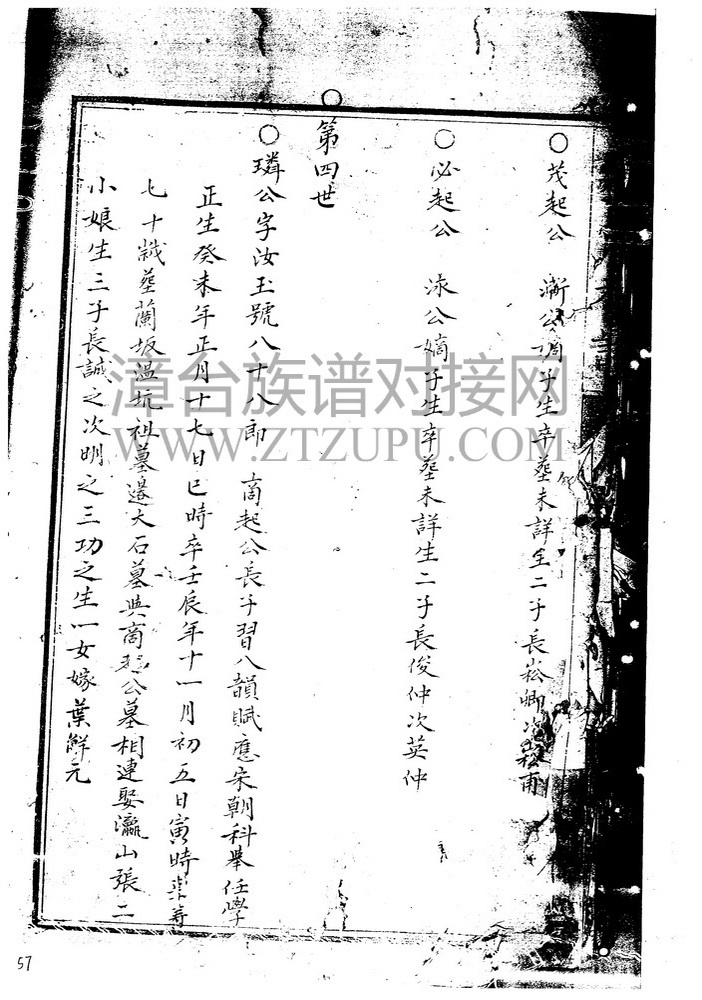 ○茂起公 澵公嫡子生卒塟未詳生二子長崧卿次崧甫
○必起公 淥公嫡子生卒塟未詳生二子長俊仲次英仲
○第四世
○璘公字汝玉號八十八郎 商起公長子習八韻賦應宋朝科舉任學
正生癸未年正月十七日巳時卒壬辰年十一月初五日寅時享壽
七十歲塟蘭坂溫坑祖墓邊大石墓與商起公墓相連娶瀛山張二
小娘生三子長誠之次明之三功之生一女嫁葉解元
漳台族谱对接网
WWW.ZTZUPU.COM
57